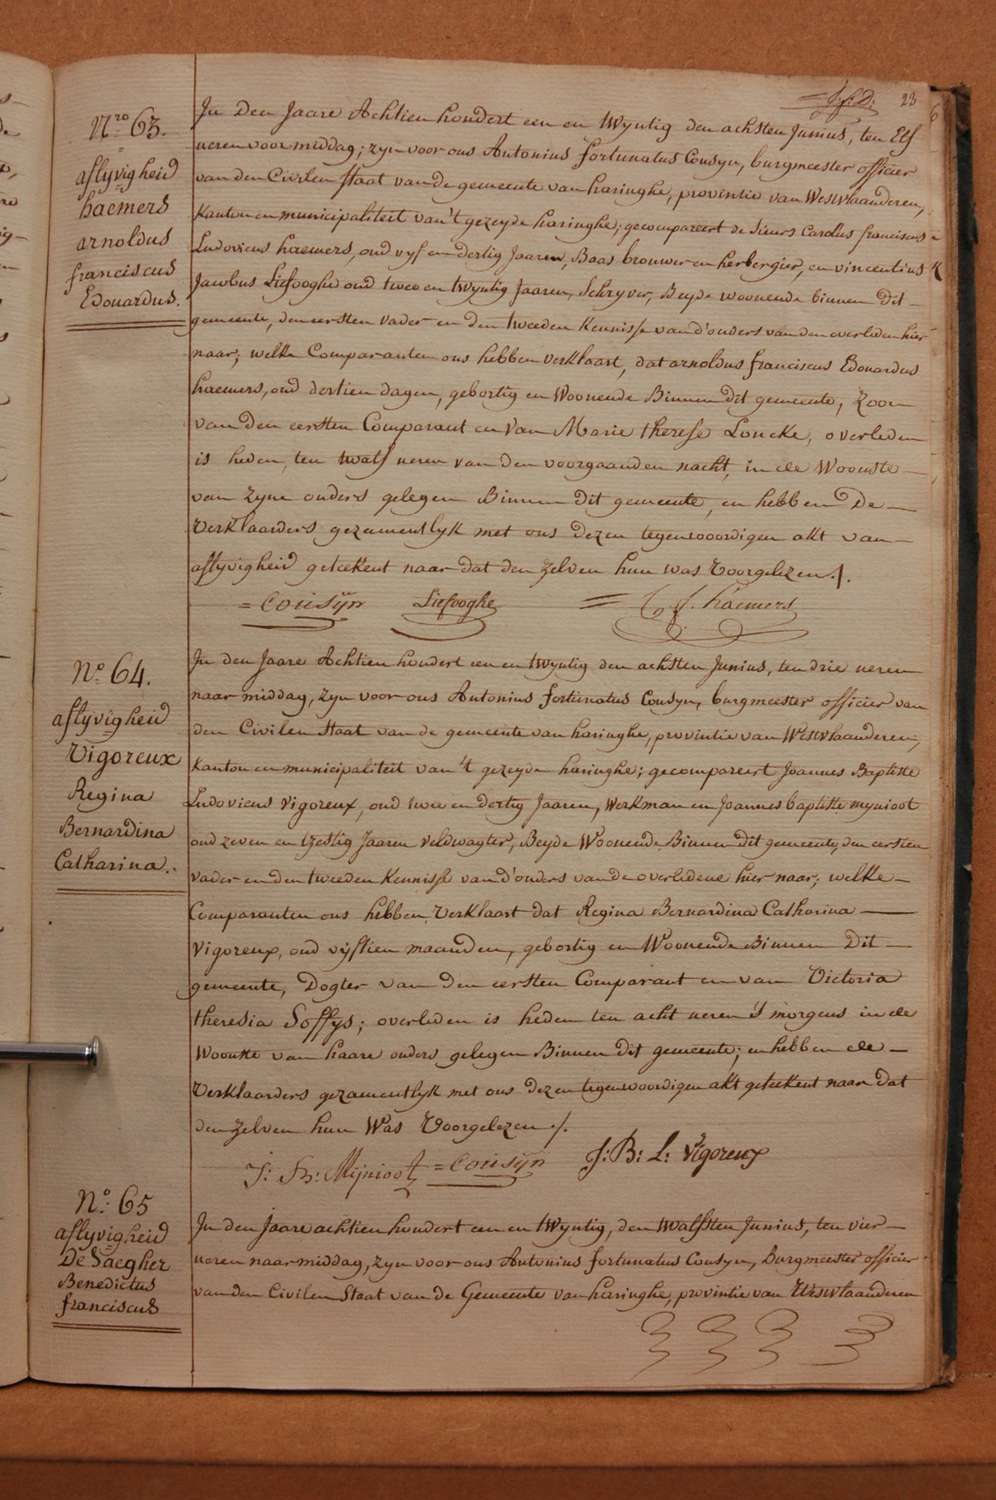 23
Nro 63.
aflyvigheid
haemers
arnoldus
franciscus
Edouardus.
In Den Jaare Achtien hondert een en twyntig den achsten Junius, ten Elf
ueren voor middag; zyn voor ons Antonius fortunatus Cousyn, burgmeester officier
van den Civilen Staat van de gemeente van haringhe, provintie van Westvlaanderen,
Kanton en municipaliteit van 't gezeyde haringhe; gecompareert de sieurs Carolus franciscus
Ludovicus haemers, oud vyf en dertig Jaaren, Baas brouwer en herbergier, en vincentius
Jacobus Liefooghe oud twee en twyntig Jaaren, Schryver, Beyde woonende binnen dit
gemeente, den eersten vader en den tweeden Kennisse van d'ouders van den overleden hier
naar; welke Comparanten ons hebben verklaart, dat arnoldus franciscus Edouardus
haemers, oud dertien dagen, gebortig en Woonende Binnen Dit gemeente, Zoon
van den eersten Comparant en van Marie therese Loncke, overleden
is heden, ten twalf ueren van den voorgaanden nacht, in de Woonste
van zyne ouders gelegen Binnen Dit gemeente, en hebben De
Verklaarders gezamentlyk met ons dezen tegenwoordigen akt van
aflyvigheid geteekent naar dat den zelven hun was Voorgelezen ./.
= Cousÿn Liefooghe = C. f. haemers
No 64.
aflyvigheid
Vigoreux
Regina
Bernardina
Catharina.
In den Jaare Achtien hondert een en twyntig den achsten Junius, ten drie ueren
naar middag, zyn voor ons Antonius fortunatus Cousyn, burgmeester officier van
den Civilen Staat van de gemeente van haringhe, provintie van Westvlaanderen,
Kanton en municipaliteit van 't gezeyde haringhe; gecompareert Joannes Baptiste
Ludovicus vigoreux, oud twee en dertig Jaaren, Werkman en Joannes baptiste mynioot
oud zeven en tzestig Jaaren veldwagter, Beyde Woonende Binnen dit gemeente, den eersten
vader en den tweeden Kennisse van d'ouders van de overledene hier naar; welke
Comparanten ons hebben Verklaart dat Regina Bernardina Catharina
vigoreux, oud vyftien maanden, gebortig en Woonende Binnen Dit
gemeente, Dogter van den eersten Comparant en van Victoria
theresia Soffys; overleden is heden ten acht ueren 's morgens in de
Woonste van haare ouders gelegen Binnen dit gemeente; en hebben de
Verklaarders gezamentlyk met ons dezen tegenwoordigen akt geteekent naar dat
den zelven hun Was Voorgelezen ./.
J: B: Mÿnioot = Cousÿn J: B: L: Vigoreux
No 65
aflyvigheid
De Saegher
Benedictus
franciscus
In den Jaare achtien hondert een en twyntig, den twalfsten Junius, ten vier
ueren naar middag, zyn voor ons Antonius fortunatus Cousyn, Burgmeester officier
van den Civilen Staat van de Gemeente van haringhe, provintie van Westvlaanderen